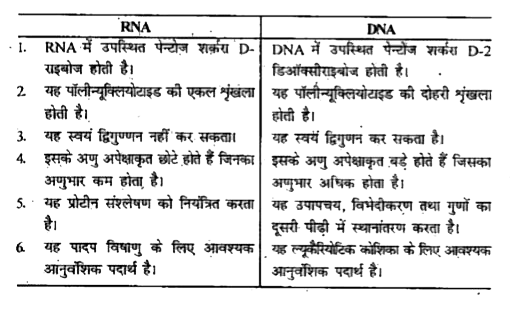 RNA DNA
1. RNA में उपस्थित पेन्टोज शर्करा D- DNA में उपस्थित पेन्टोज शर्करा D-2
राइबोज होती है। डिऑक्सीराइबोज होती है।
2. यह पॉलीन्यूक्लियोटाइड की एकल शृंखला यह पॉलीन्यूक्लियोटाइड की दोहरी शृंखला
होती है। होती है।
3. यह स्वयं द्विगुणन नहीं कर सकता। यह स्वयं द्विगुणन कर सकता है।
4. इसके अणु अपेक्षाकृत छोटे होते हैं जिनका इसके अणु अपेक्षाकृत बड़े होते हैं जिसका
अणुभार कम होता है। अणुभार अधिक होता है।
5. यह प्रोटीन संश्लेषण को नियंत्रित करता यह उपापचय, विभेदीकरण तथा गुणों का
है। दूसरी पीढ़ी में स्थानांतरण करता है।
6. यह पादप विषाणु के लिए आवश्यक यह ल्यूकैरियोटिक कोशिका के लिए आवश्यक
आनुवंशिक पदार्थ है। आनुवंशिक पदार्थ है।